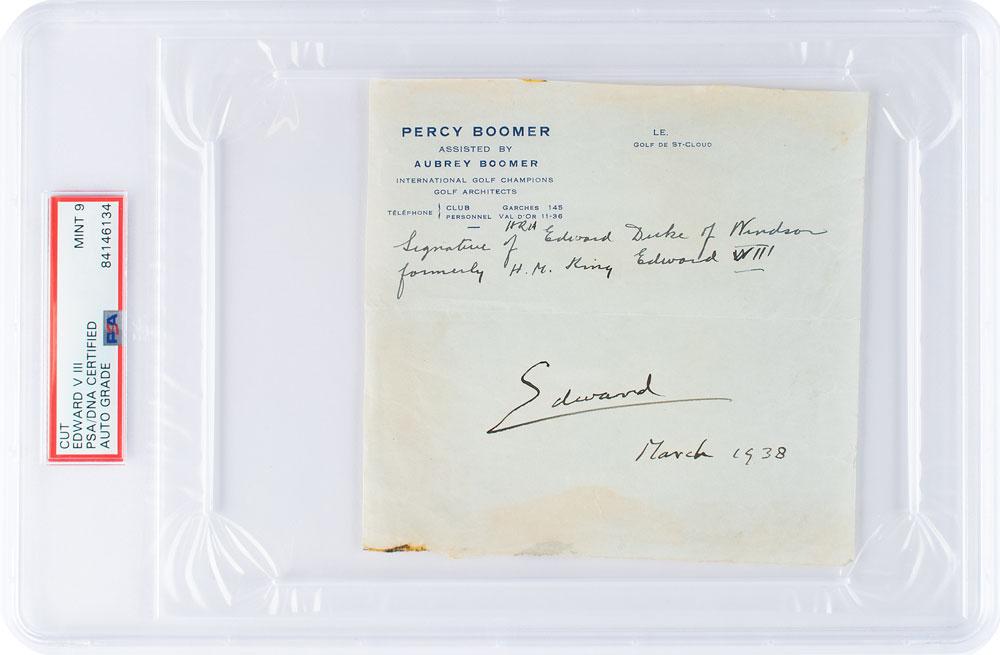 CUT
EDWARD V III
PSA/DNA CERTIFIED
AUTO GRADE
MINT 9
84146134
PSA
PERCY BOOMER
ASSISTED BY
AUBREY BOOMER
INTERNATIONAL GOLF CHAMPIONS
GOLF ARCHITECTS
TÉLÉPHONE
CLUB GARCHES 145
PERSONNEL VAL D'OR 11-36
LE.
GOLF DE ST-CLOUD
HRH
Signature of Edward Duke of Windsor
formerly H.M. King Edward VIII
Edward
March 1938